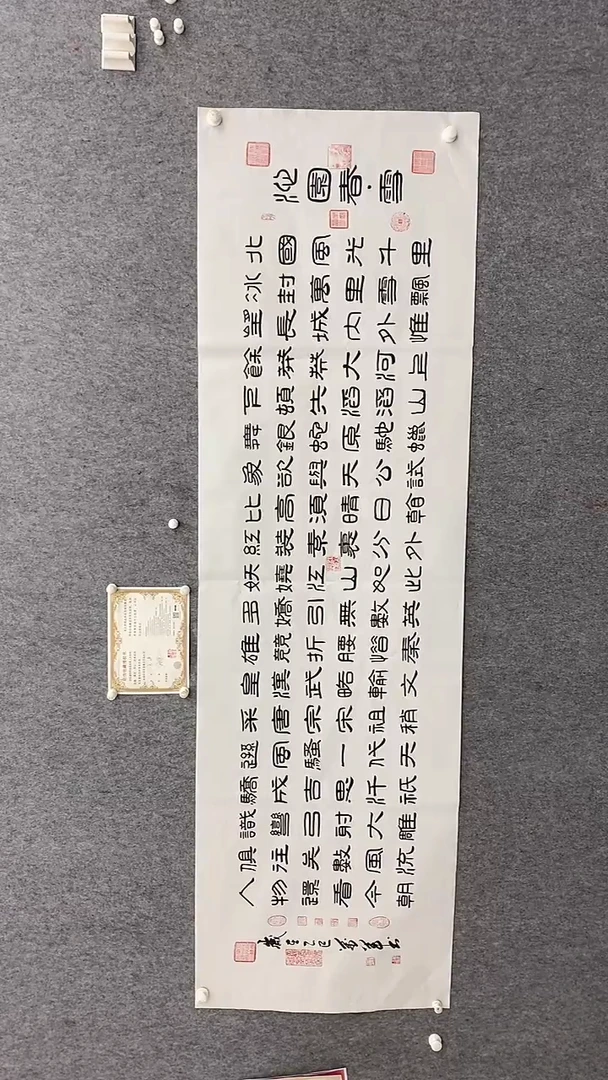 沁園春·雪
北國風光千里
冰封萬里雪飄
望長城內外惟
餘莽莽大河上
下頓失滔滔山
舞銀蛇原馳蠟
象欲與天公試
比高須晴日
紅裝素裹分外
妖嬈江山如此
多嬌引無數英
雄競折腰惜秦
皇漢武略輸文
采唐宗宋祖稍
遜風騷一代天
驕成吉思汗祇
識彎弓射大雕
俱往矣數風流
人物還看今朝
歲在乙巳